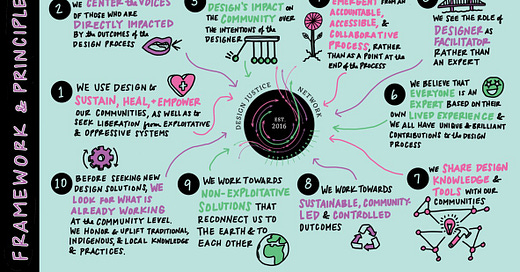 FRAMEWORK & PRINCIPLE
1
WE USE DESIGN to
SUSTAIN, HEAL, + EMPOWER
OUR COMMUNITIES, AS WELL AS to
SEEK LIBERATION from EXPLOITATIVE
& OPPRESSIVE SYSTEMS
2
WE CENTER the VOICES
OF THOSE WHO ARE
DIRECTLY IMPACTED
BY the OUTCOMES of the
DESIGN PROCESS
3
DESIGN'S IMPACT on
the COMMUNITY OVER
the INTENTIONS of the
DESIGNER
EMERGENT FROM AN
ACCOUNTABLE,
ACCESSIBLE, &
COLLABORATIVE
PROCESS, RATHER
THAN AS A POINT AT the
END of the PROCESS
WE SEE the ROLE of
DESIGNER as
FACILITATOR
RATHER THAN
AN EXPERT
6
WE BELIEVE THAT
EVERYONE IS AN
EXPERT BASED ON THEIR
OWN LIVED EXPERIENCE &
WE ALL HAVE UNIQUE & BRILLIANT
CONTRIBUTIONS to the DESIGN
PROCESS
7
WE SHARE DESIGN
KNOWLEDGE &
TOOLS WITH OUR
COMMUNITIES
8
WE WORK TOWARDS
SUSTAINABLE, COMMUNITY-
LED & CONTROLLED
OUTCOMES
9
WE WORK TOWARDS
NON-EXPLOITATIVE
SOLUTIONS THAT
RECONNECT US TO
THE EARTH & TO
EACH OTHER
10
BEFORE SEEKING NEW
DESIGN SOLUTIONS, WE
LOOK FOR WHAT IS
ALREADY WORKING
AT the COMMUNITY LEVEL.
WE HONOR & UPLIFT TRADITIONAL,
INDIGENOUS, & LOCAL KNOWLEDGE
& PRACTICES.
DESIGN JUSTICE NETWORK
EST.
2016